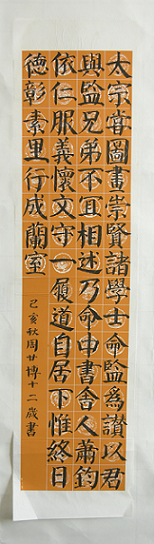 太宗嘗圖畫崇賢諸學士命監為讚以君
與監兄弟不宜相述乃命中書舍人蕭鈞
依仁服義懷文守一履道自居下惟終日
德彰素里行成蘭室
己亥秋周廿博十二歲書